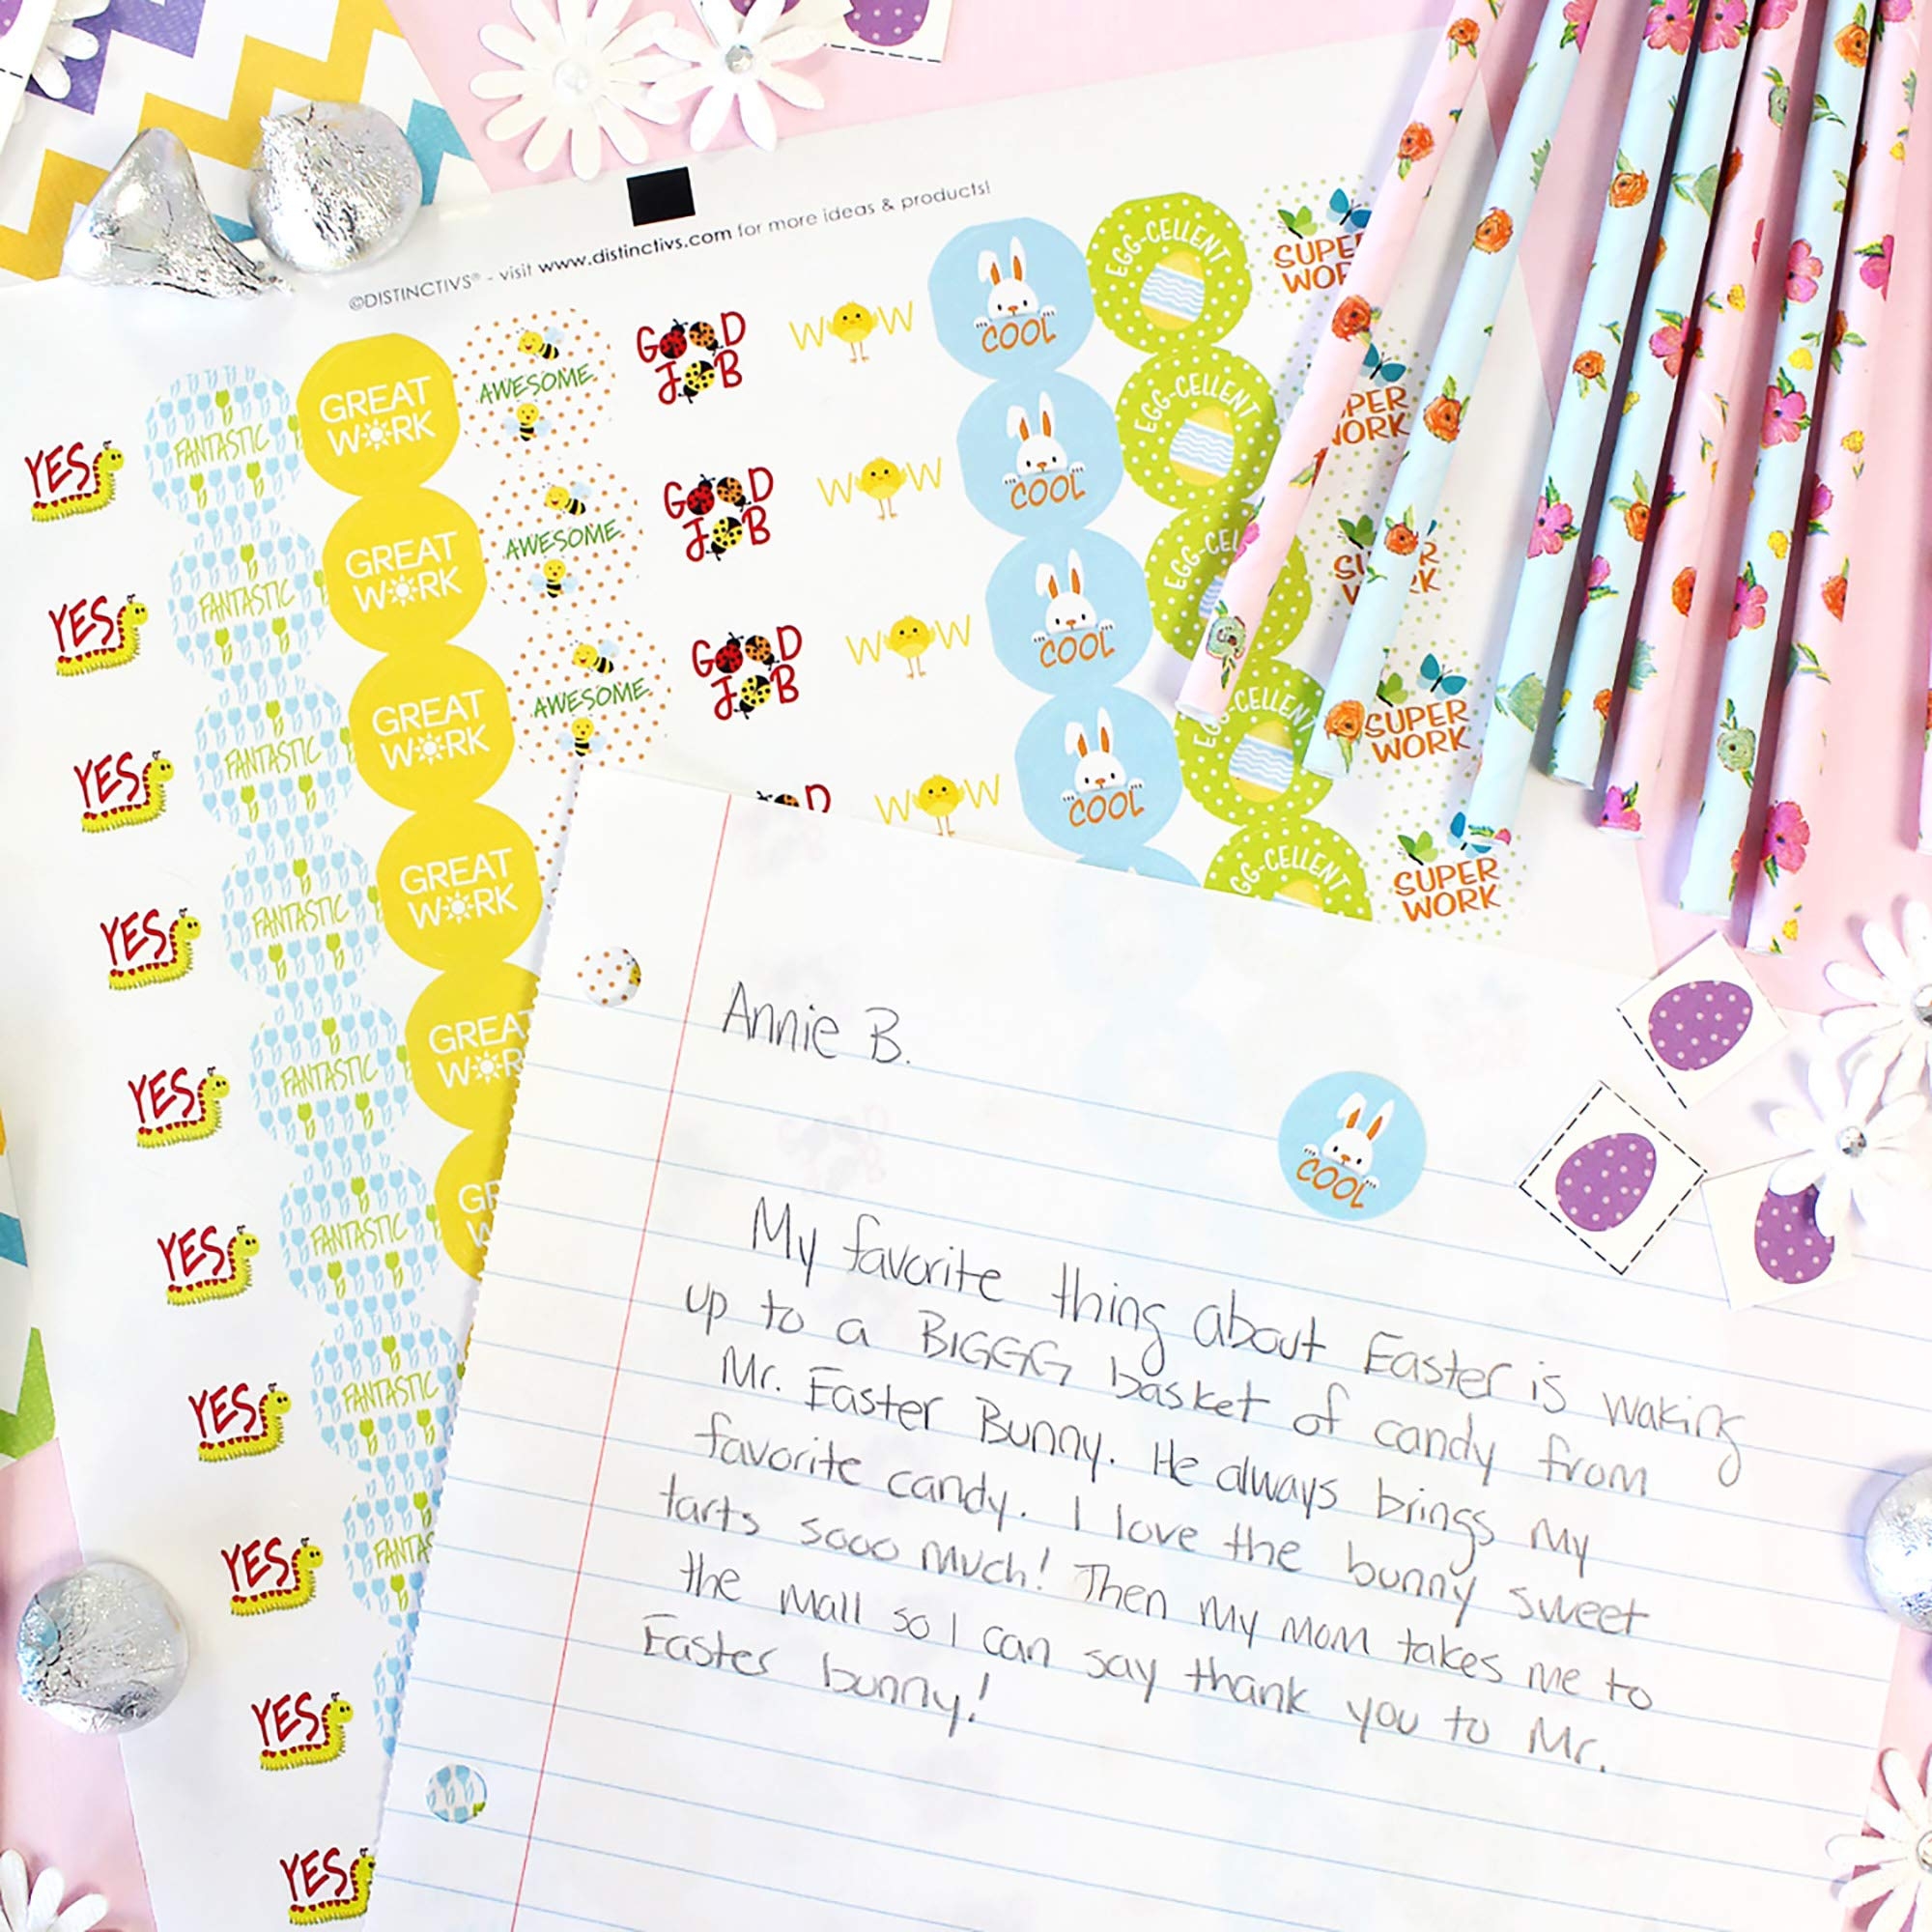 ©DISTINCTIVS® - visit www.distinctivs.com for more ideas & products!
YES
FANTASTIC
GREAT
WORK
AWESOME
GOOD
JOB
WOW
COOL
EGG-CELLENT
SUPE
WOR
YES
FANTASTIC
GREAT
WORK
AWESOME
GOOD
JOB
WOW
COOL
EGG-CELLENT
PER
WORK
YES
FANTASTIC
GREAT
WORK
AWESOME
GOOD
JOB
WOW
COOL
EGG-CEL
SU R
W RK
YES
FANTASTIC
GREAT
WORK
WOW
COOL
EGG-CELLENT
SUPER
WORK
YES
FANTASTIC
GREAT
WOR
GG-CELLENT
SUPER
WORK
YES
FANTASTIC
GR
W
YES
FANTASTIC
YES
FANTAS
YES
YES
Annie B.
COOL
My favorite thing about Easter is waking
up to a BIGGG basket of candy from
Mr. Easter Bunny. He always brings my
favorite candy. I love the bunny sweet
tarts sooo much! Then my mom takes me to
the mall so I can say thank you to Mr.
Easter bunny!